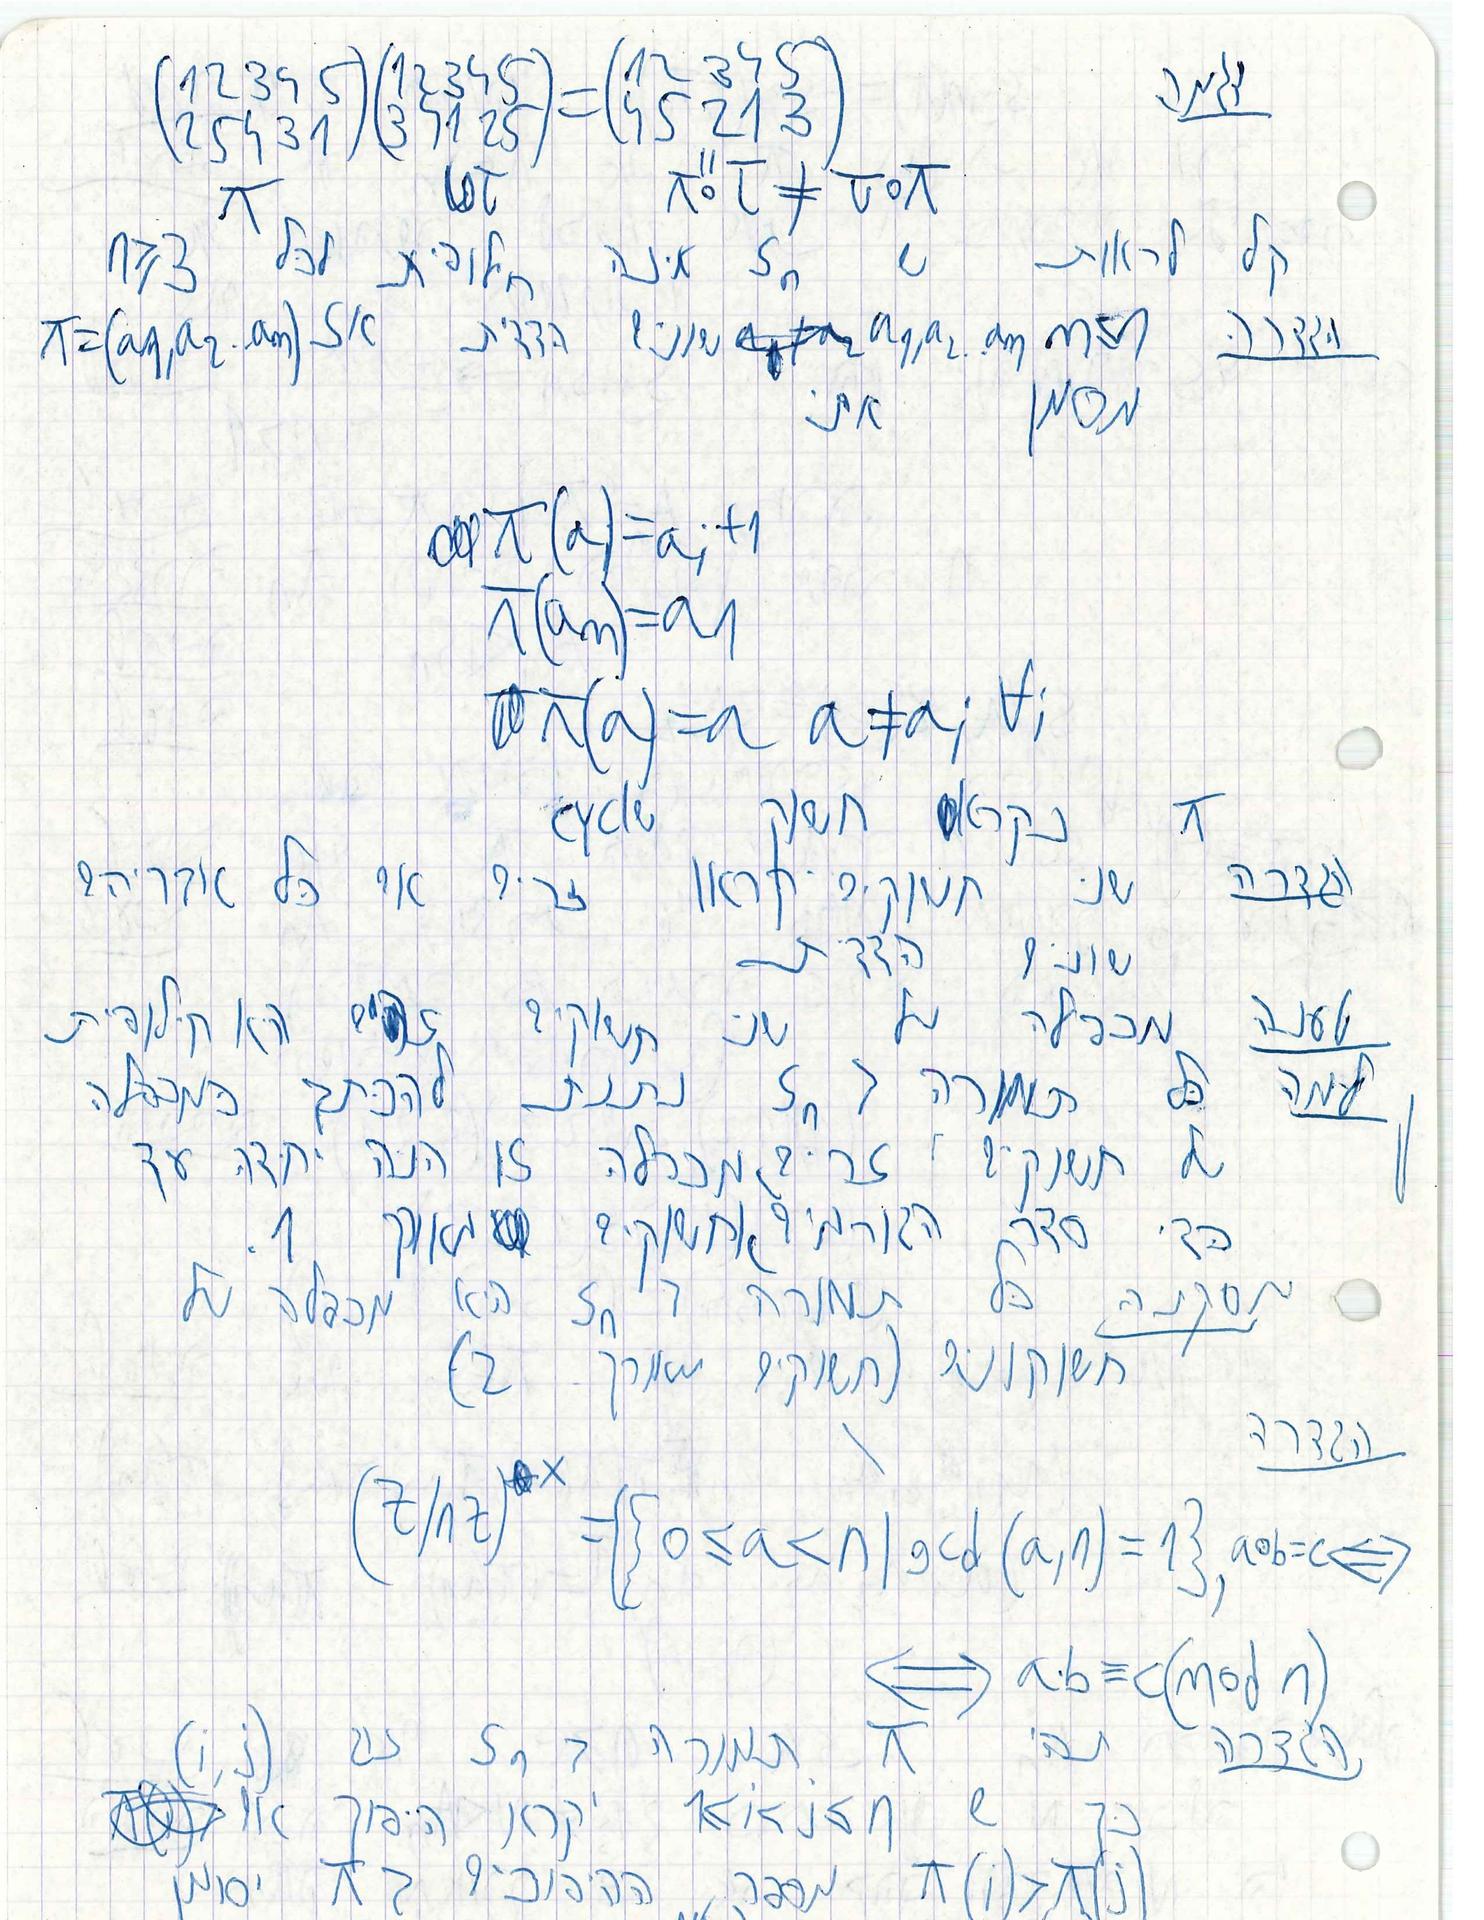 דוגמה
(1 2 3 4 5 / 2 5 4 3 1)(1 2 3 4 5 / 3 4 1 2 5) = (1 2 3 4 5 / 4 5 2 1 3)
π τ π∘τ ≠ τ∘π
קל לראות ש Sn אינה חילופית לכל n≥3
הגדרה m≤n a1,a2..am שונים הדדית אז π=(a1,a2..am)
מסמן את:
π(ai)=ai+1
π(am)=a1
π(a)=a a≠ai ∀i
π נקרא חשוק cycle
הגדרה שני חשוקים יקראו זרים אם כל אבריהם
שונים הדדית
טענה מכפלה של שני חשוקים זרים היא חילופית
למה כל תמורה ב Sn ניתנת להכתב כמכפלה
של חשוקים זרים, מכפלה זו הנה יחידה עד
כדי סדר הגורמים וחשוקים מאורך 1.
מסקנה כל תמורה ב Sn היא מכפלה של
חשוקונים (חשוקים מאורך 2)
הגדרה
(Z/nZ)^x = ({0≤a<n | gcd(a,n)=1}, a∘b=c ⟺
⟺ a·b≡c(mod n)
הגדרה תהי π תמורה ב Sn זוג (i,j)
כך ש 1≤i<j≤n יקרא היפוך אם
π(i)>π(j) מספר ההיפוכים ב π יסומן